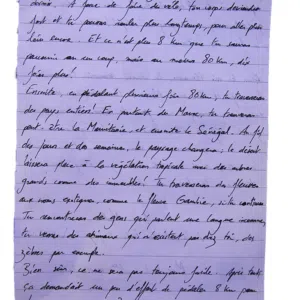 devenir. A force de faire du vélo, ton corps deviendra
fort et tu pourras rouler plus longtemps, pour aller plus
loin encore. Et ce n'est plus 8 km que tu pourras
parcourir en un coup, mais au moins 80 km, dix
fois plus!
Ensuite, en pédalant plusieurs fois 80 km, tu traverseras
des pays entiers! En partant du Maroc, tu traverseras
peut-être la Mauritanie et ensuite le Sénégal. Au fil
des jours et des semaines, le paysage changera, le désert
laissera place à la végétation tropicale avec des arbres
grands comme des immeubles! Tu traverseras des fleuves
aux noms exotiques, comme le fleuve Gambie, si tu continues
Tu rencontreras des gens qui parlent une langue inconnue,
tu verras des animaux qui n'existent pas chez toi, des
zèbres par exemple.
Bien sûr, ce ne sera pas toujours facile. Après tout,
ça demandait un peu d'effort de pédaler 8 km pour